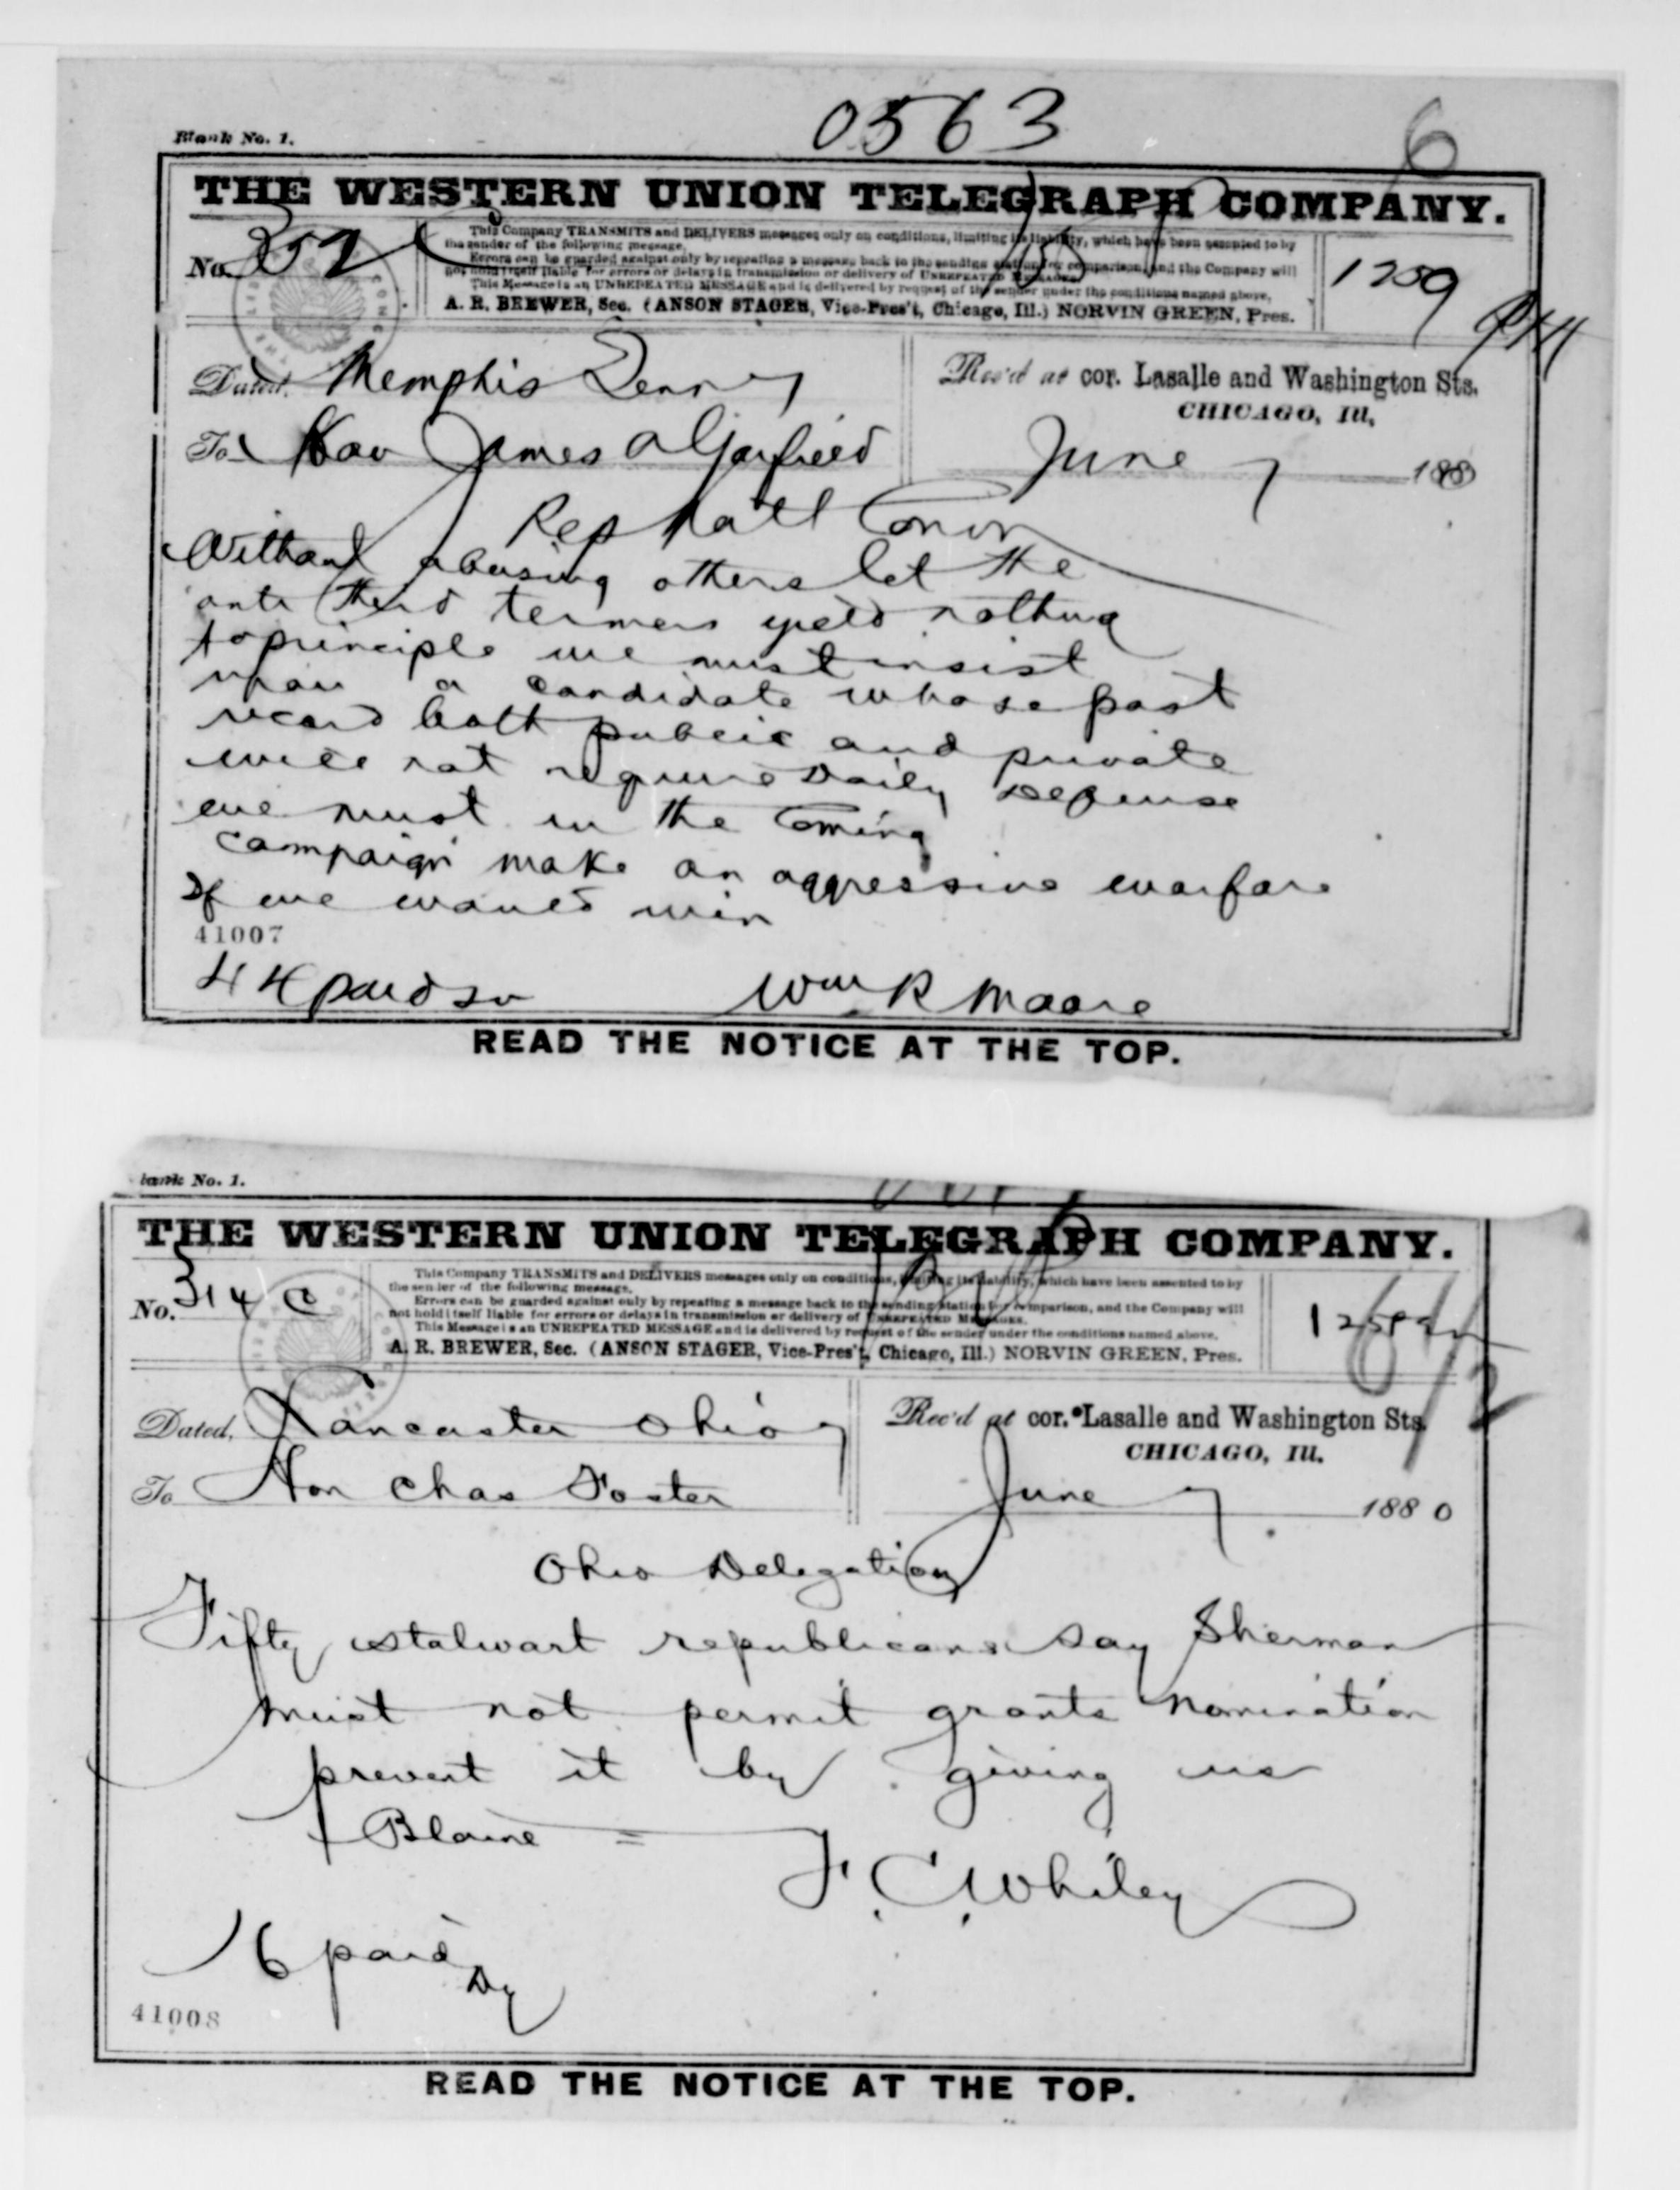 0563
6
Blank No. 1.
THE WESTERN UNION TELEGRAPH COMPANY.
No. 352
This Company TRANSMITS and DELIVERS messages only on conditions, limiting its liability, which have been assented to by
the sender of the following message.
Errors can be guarded against only by repeating a message back to the sending station for comparison, and the Company will
not hold itself liable for errors or delays in transmission or delivery of UNREPEATED MESSAGES.
This Message is an UNREPEATED MESSAGE and is delivered by request of the sender under the conditions named above.
A. R. BREWER, Sec. (ANSON STAGER, Vice-Pres't, Chicago, Ill.) NORVIN GREEN, Pres.
1259
Dated, Memphis Tenn 7
Rec'd at cor. Lasalle and Washington Sts.
CHICAGO, Ill,
To Hon James A Garfield
June 7 1880
Rep Natl Convn
Without abusing others let the
anti third termers yield nothing
to principle we must insist
upon a candidate whose past
record both public and private
will not require Daily Defense
we must in the Coming
campaign make an aggressive warfare
If we would win
41007
44 paid
Wm R Moore
READ THE NOTICE AT THE TOP.
lank No. 1.
THE WESTERN UNION TELEGRAPH COMPANY.
No. 314 C
This Company TRANSMITS and DELIVERS messages only on conditions, limiting its liability, which have been assented to by
the sender of the following message.
Errors can be guarded against only by repeating a message back to the sending station for comparison, and the Company will
not hold itself liable for errors or delays in transmission or delivery of UNREPEATED MESSAGES.
This Message is an UNREPEATED MESSAGE and is delivered by request of the sender under the conditions named above.
A. R. BREWER, Sec. (ANSON STAGER, Vice-Pres't, Chicago, Ill.) NORVIN GREEN, Pres.
Dated, Lancaster Ohio 7
Rec'd at cor. Lasalle and Washington Sts.
CHICAGO, Ill.
To Hon Chas Foster
June 7 1880
Ohio Delegation
Fifty stalwart republicans say Sherman
must not permit grants nomination
prevent it by giving us
Blaine =
F. C. Whiley
16 paid
41008
READ THE NOTICE AT THE TOP.